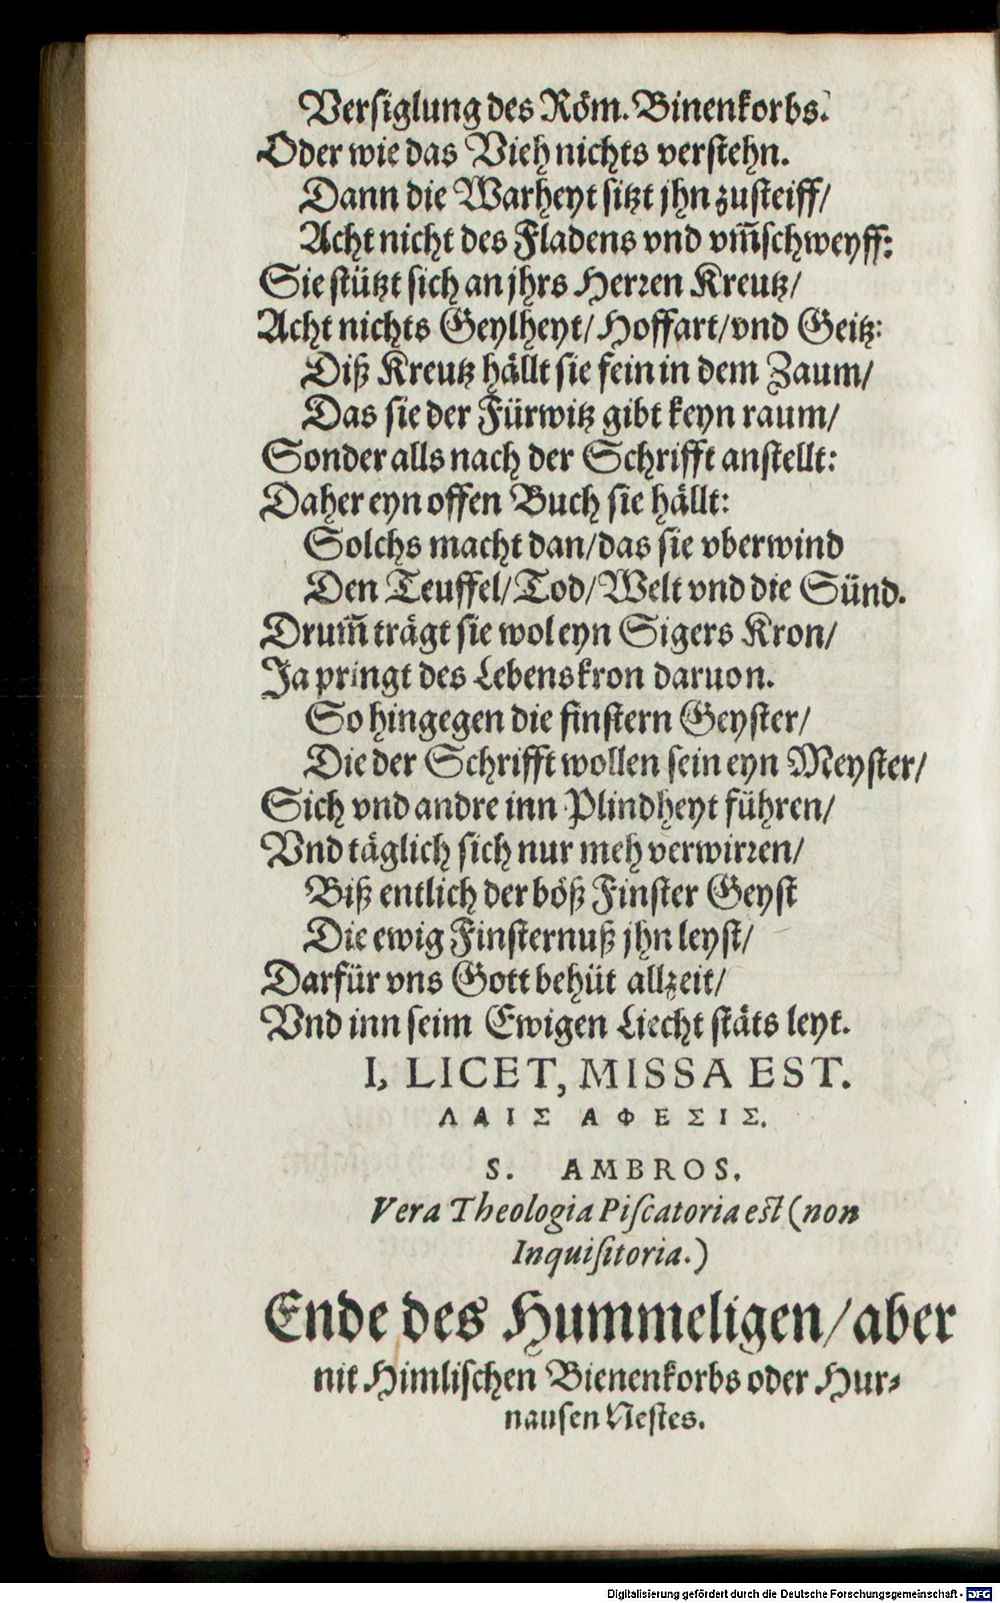 Versiglung des Röm. Binenkorbs.
Oder wie das Vieh nichts verstehn.
Dann die Warheyt sitzt jhn zusteiff/
Acht nicht des Fladens vnd vm̃schweyff:
Sie stützt sich an jhrs Herren Kreutz/
Acht nichts Geylheyt/ Hoffart/ vnd Geitz:
Diß Kreutz hällt sie fein in dem Zaum/
Das sie der Fürwitz gibt keyn raum/
Sonder alls nach der Schrifft anstellt:
Daher eyn offen Buch sie hällt:
Solchs macht dan/ das sie vberwind
Den Teuffel/ Tod/ Welt vnd die Sünd.
Drum̃ trägt sie wol eyn Sigers Kron/
Ja pringt des Lebenskron daruon.
So hingegen die finstern Geyster/
Die der Schrifft wollen sein eyn Meyster/
Sich vnd andre inn Plindheyt führen/
Vnd täglich sich nur meh verwirren/
Biß entlich der böß Finster Geyst
Die ewig Finsternuß jhn leyst/
Darfür vns Gott behüt allzeit/
Vnd inn seim Ewigen Liecht stäts leyt.
I, LICET, MISSA EST.
ΛΑΙΣ ΑΦΕΣΙΣ.
S. AMBROS.
Vera Theologia Piscatoria est (non
Inquisitoria.)
Ende des Hummeligen/ aber
nit Himlischen Bienenkorbs oder Hur-
nausen Nestes.
Digitalisierung gefördert durch die Deutsche Forschungsgemeinschaft - DFG